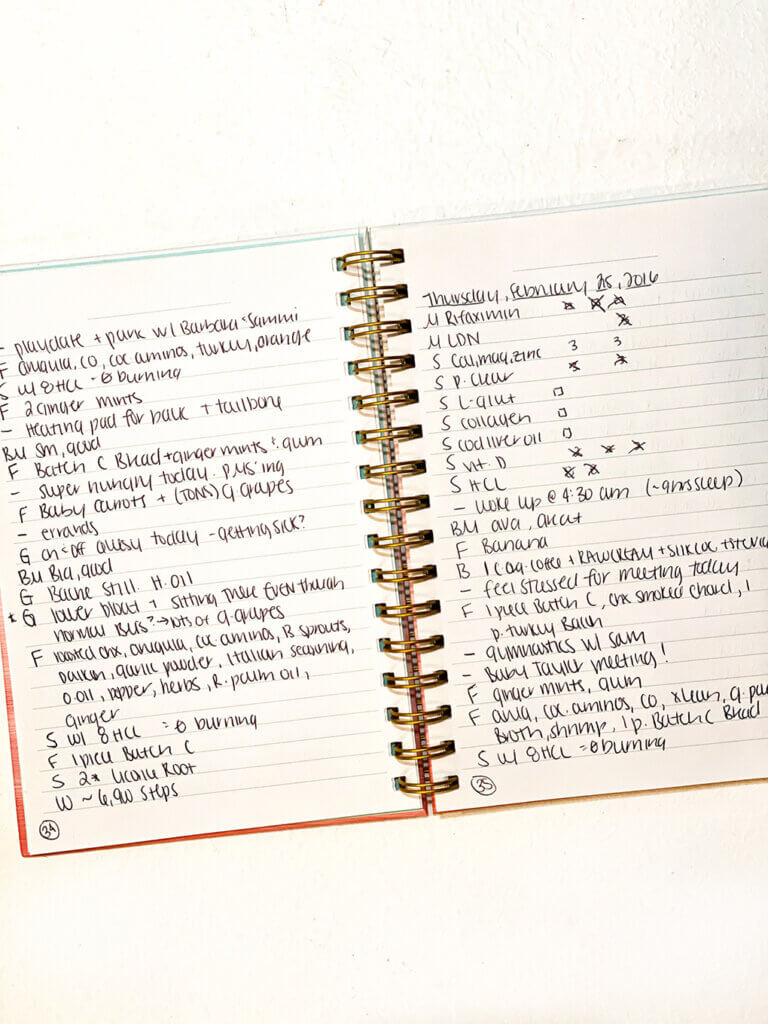 - playdate + park w/ Barbara & Sammi
F arugula, CO, coc aminos, turkey, orange
S w/ 8 HCL = Ө burning
F 2 Ginger mints
- Heating pad for back + tailbone
BM sm, good
F Batch C Bread + ginger mints & gum
- super hungry today. PMS'ing
F Baby carrots + (TONS) G. grapes
- errands
G on & off queasy today - getting sick?
BM Big, good
G Bache still. H. Oil
* G lower bloat + sitting there even though
normal BMs? → lots of g. grapes
F roasted chx, arugula, coc aminos, B sprouts,
garlic powder, Italian seasoning,
O. oil, pepper, herbs, R. palm oil,
ginger
S w/ 8 HCL = Ө burning
F 1 piece Batch C
S 2x Licorice Root
W ~ 6,900 steps
34
Thursday, February 25, 2016
M Rifaximin
M LDN
S Cal, mag, zinc 3 3
S P. Clear
S L-glut
S collagen
S cod liver oil
S Vit. D
S HCL
- woke up @ 4:30 am (~ 9 hrs sleep)
BM
F Banana
B 1 C org. coffee + RAW CREAM + SILK COC + STEVIA
- feel stressed for meeting today
F 1 piece Batch C, chx smoked chard, 1
p. turkey Bacon
- gymnastics w/ Sam
- Baby Taylor meeting!
F ginger mints, gum
F coc. aminos, CO,
Broth, shrimp, 1 p. Batch C Bread
S w/ 8 HCL = Ө burning
35